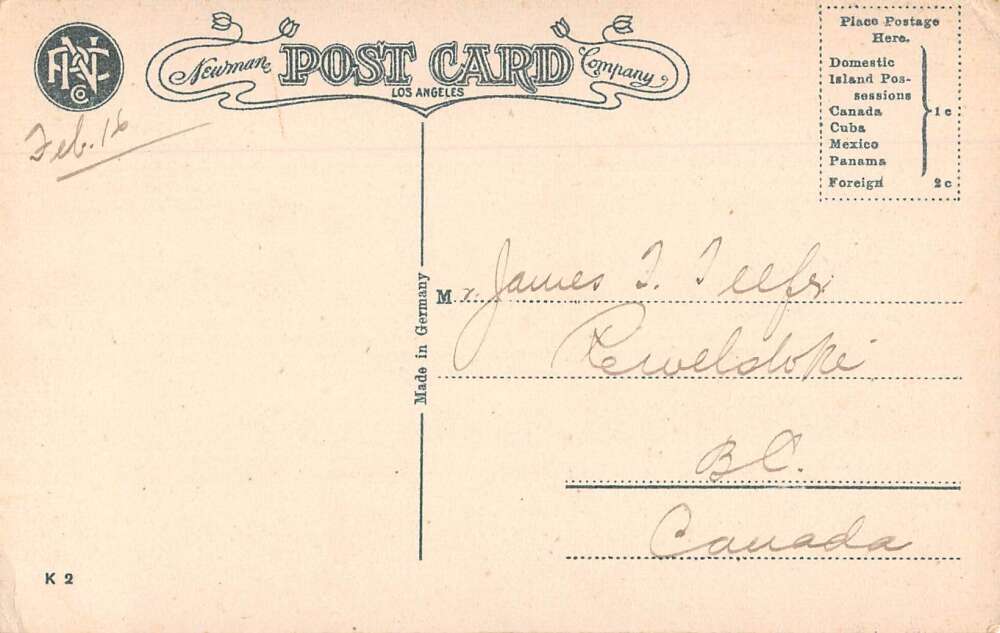 PNC Co
Newman POST CARD Company
LOS ANGELES
Place Postage
Here.
Domestic
Island Pos-
sessions
Canada
Cuba
Mexico
Panama
1c
Foreign 2c
Feb. 16
Made in Germany
Mr. James T.
B C.
Canada
K 2